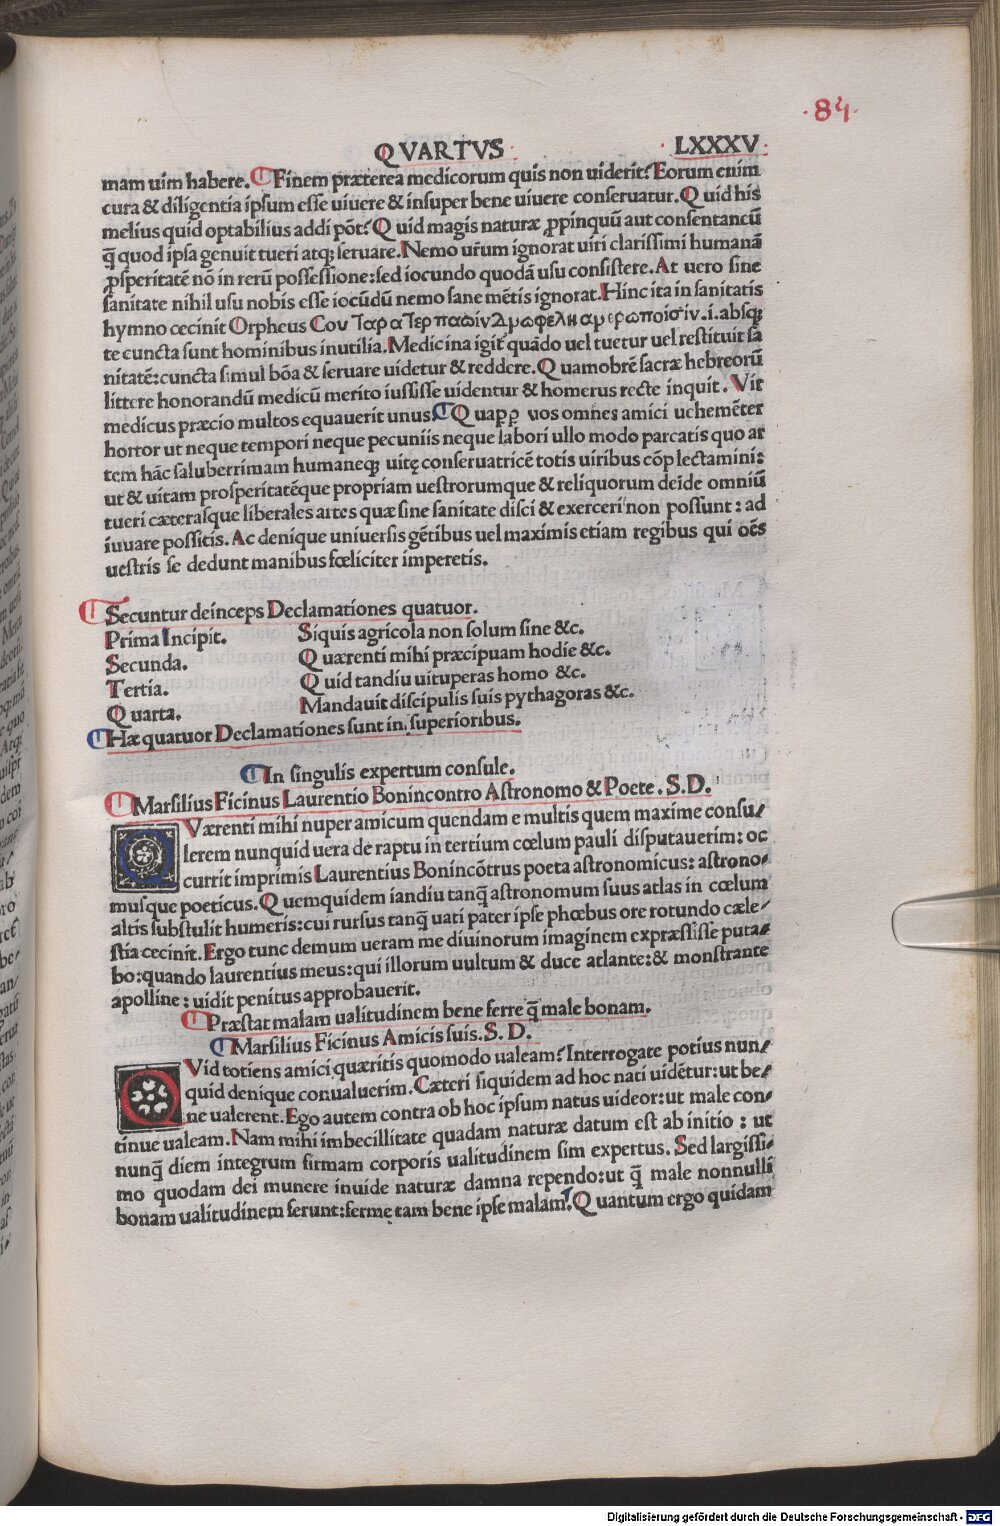 ·84·
QVARTVS LXXXV
mam uim habere. Finem præterea medicorum quis non uiderit? Eorum enim
cura & diligentia ipsum esse uiuere & insuper bene uiuere conseruatur. Quid his
melius quid optabilius addi põt? Quid magis naturæ ꝓpinquũ aut consentaneũ
q̃ quod ipsa genuit tueri atqꝫ seruare. Nemo ur̃um ignorat uiri clarissimi humanã
ꝓsperitatẽ nõ in rerũ possessione: sed iocundo quodã usu consistere. At uero sine
sanitate nihil usu nobis esse iocũdũ nemo sane mẽtis ignorat. Hinc ita in sanitatis
hymno cecinit Orpheus .i. absqꝫ
te cuncta sunt hominibus inutilia. Medicina igit̃ quãdo uel tuetur uel restituit sa
nitatẽ: cuncta simul bõa & seruare uidetur & reddere. Quamobrẽ sacræ hebreorũ
littere honorandũ medicũ merito iussisse uidentur & homerus recte inquit. Vir
medicus præcio multos equauerit unus. Quaꝓꝑ uos omnes amici uehemẽter
hortor ut neque tempori neque pecuniis neque labori ullo modo parcatis quo ar
tem hãc saluberrimam humaneqꝫ uitę conseruatricẽ totis uiribus cõplectamini:
ut & uitam prosperitatẽque propriam uestrorumque & reliquorum deide omniũ
tueri cæterasque liberales artes quæ sine sanitate disci & exerceri non possunt: ad
iuuare possitis. Ac denique uniuersis gẽtibus uel maximis etiam regibus qui oẽs
uestris se dedunt manibus fœliciter imperetis.
Secuntur deinceps Declamationes quatuor.
Prima Incipit. Siquis agricola non solum sine &c.
Secunda. Quærenti mihi præcipuam hodie &c.
Tertia. Quid tandiu uituperas homo &c.
Quarta. Mandauit discipulis suis pythagoras &c.
Hæ quatuor Declamationes sunt in superioribus.
In singulis expertum consule.
Marsilius Ficinus Laurentio Bonincontro Astronomo & Poete. S. D.
Værenti mihi nuper amicum quendam e multis quem maxime consu/
lerem nunquid uera de raptu in tertium cœlum pauli disputauerim: oc
currit imprimis Laurentius Bonincõtrus poeta astronomicus: astrono/
musque poeticus. Quemquidem iandiu tanq̃ astronomum suus atlas in cœlum
altis substulit humeris: cui rursus tanq̃ uati pater ipse phœbus ore rotundo cæle/
stia cecinit. Ergo tunc demum ueram me diuinorum imaginem expræssisse puta/
bo: quando laurentius meus: qui illorum uultum & duce atlante: & monstrante
apolline: uidit penitus approbauerit.
Præstat malam ualitudinem bene ferre q̃ male bonam.
Marsilius Ficinus Amicis suis. S. D.
Q Vid totiens amici quæritis quomodo ualeam? Interrogate potius nun/
quid denique conualuerim. Cæteri siquidem ad hoc nati uidẽtur: ut be/
ne ualerent. Ego autem contra ob hoc ipsum natus uideor: ut male con
tinue ualeam. Nam mihi imbecillitate quadam naturæ datum est ab initio: ut
nunq̃ diem integrum firmam corporis ualitudinem sim expertus. Sed largissi/
mo quodam dei munere inuide naturæ damna rependo: ut q̃ male nonnulli
bonam ualitudinem ferunt: ferme tam bene ipse malam. Quantum ergo quidam
Digitalisierung gefördert durch die Deutsche Forschungsgemeinschaft - DFG